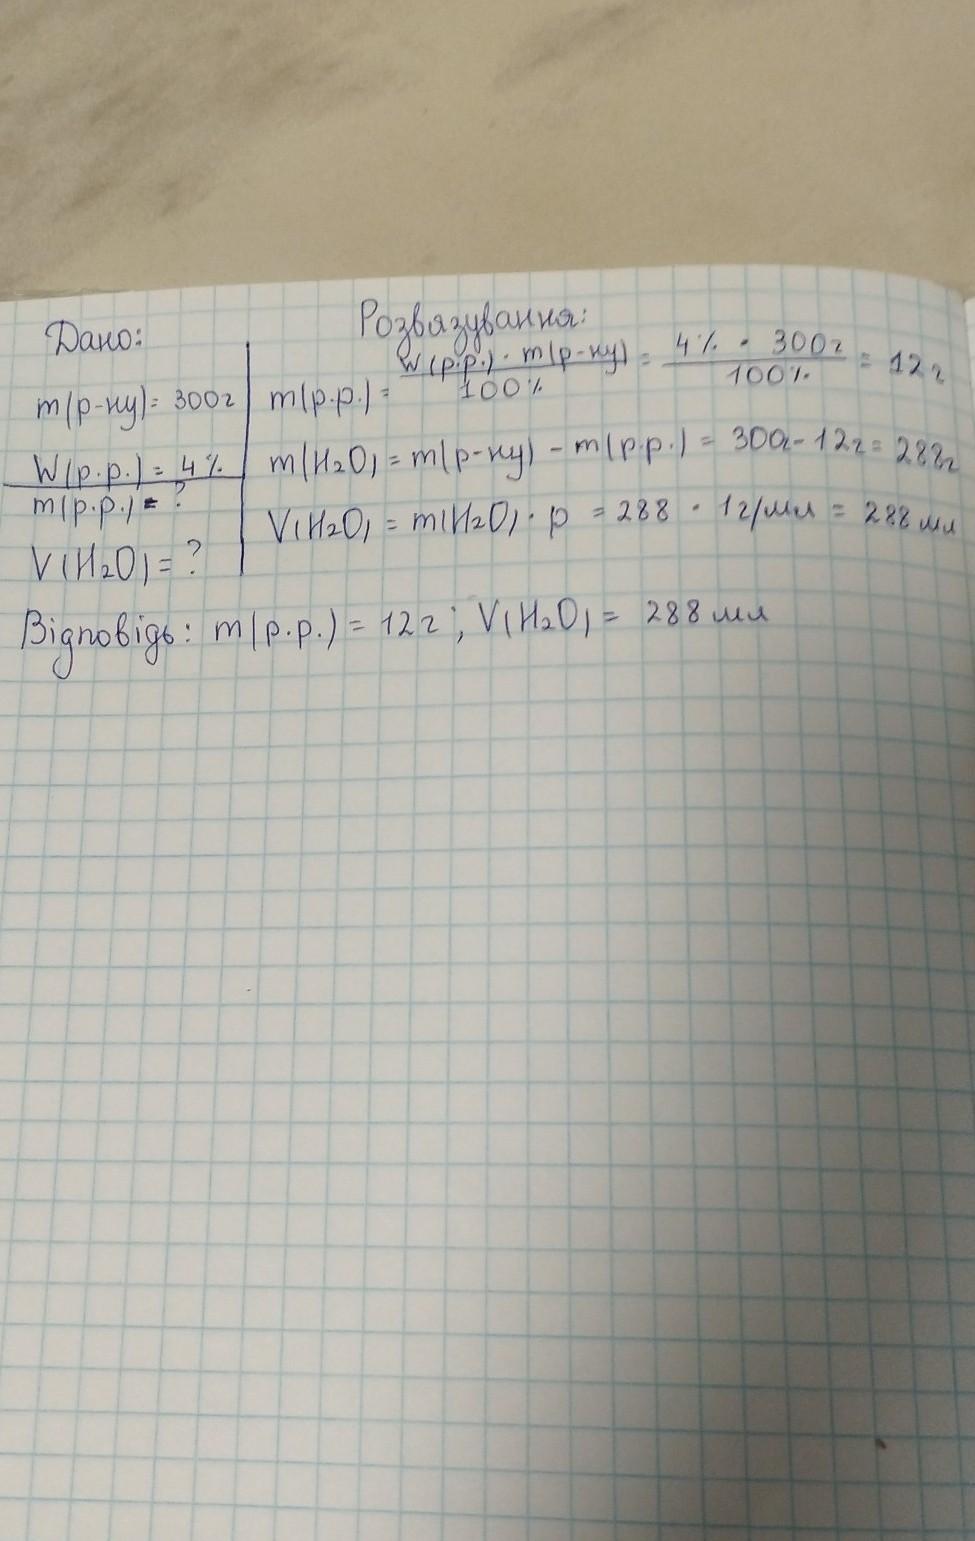 Дано:
m(р-ну)= 300г
W(р.р.) = 4%
m(р.р.) = ?
V(H₂O) = ?
Розвязування:
m(р.р.) = W(р.р.) · m(р-ну) / 100% = 4% · 300г / 100% = 12г
m(H₂O) = m(р-ну) - m(р.р.) = 300г - 12г = 288г
V(H₂O) = m(H₂O) · p = 288 · 1г/мл = 288 мл
Відповідь: m(р.р.) = 12г ; V(H₂O) = 288 мл